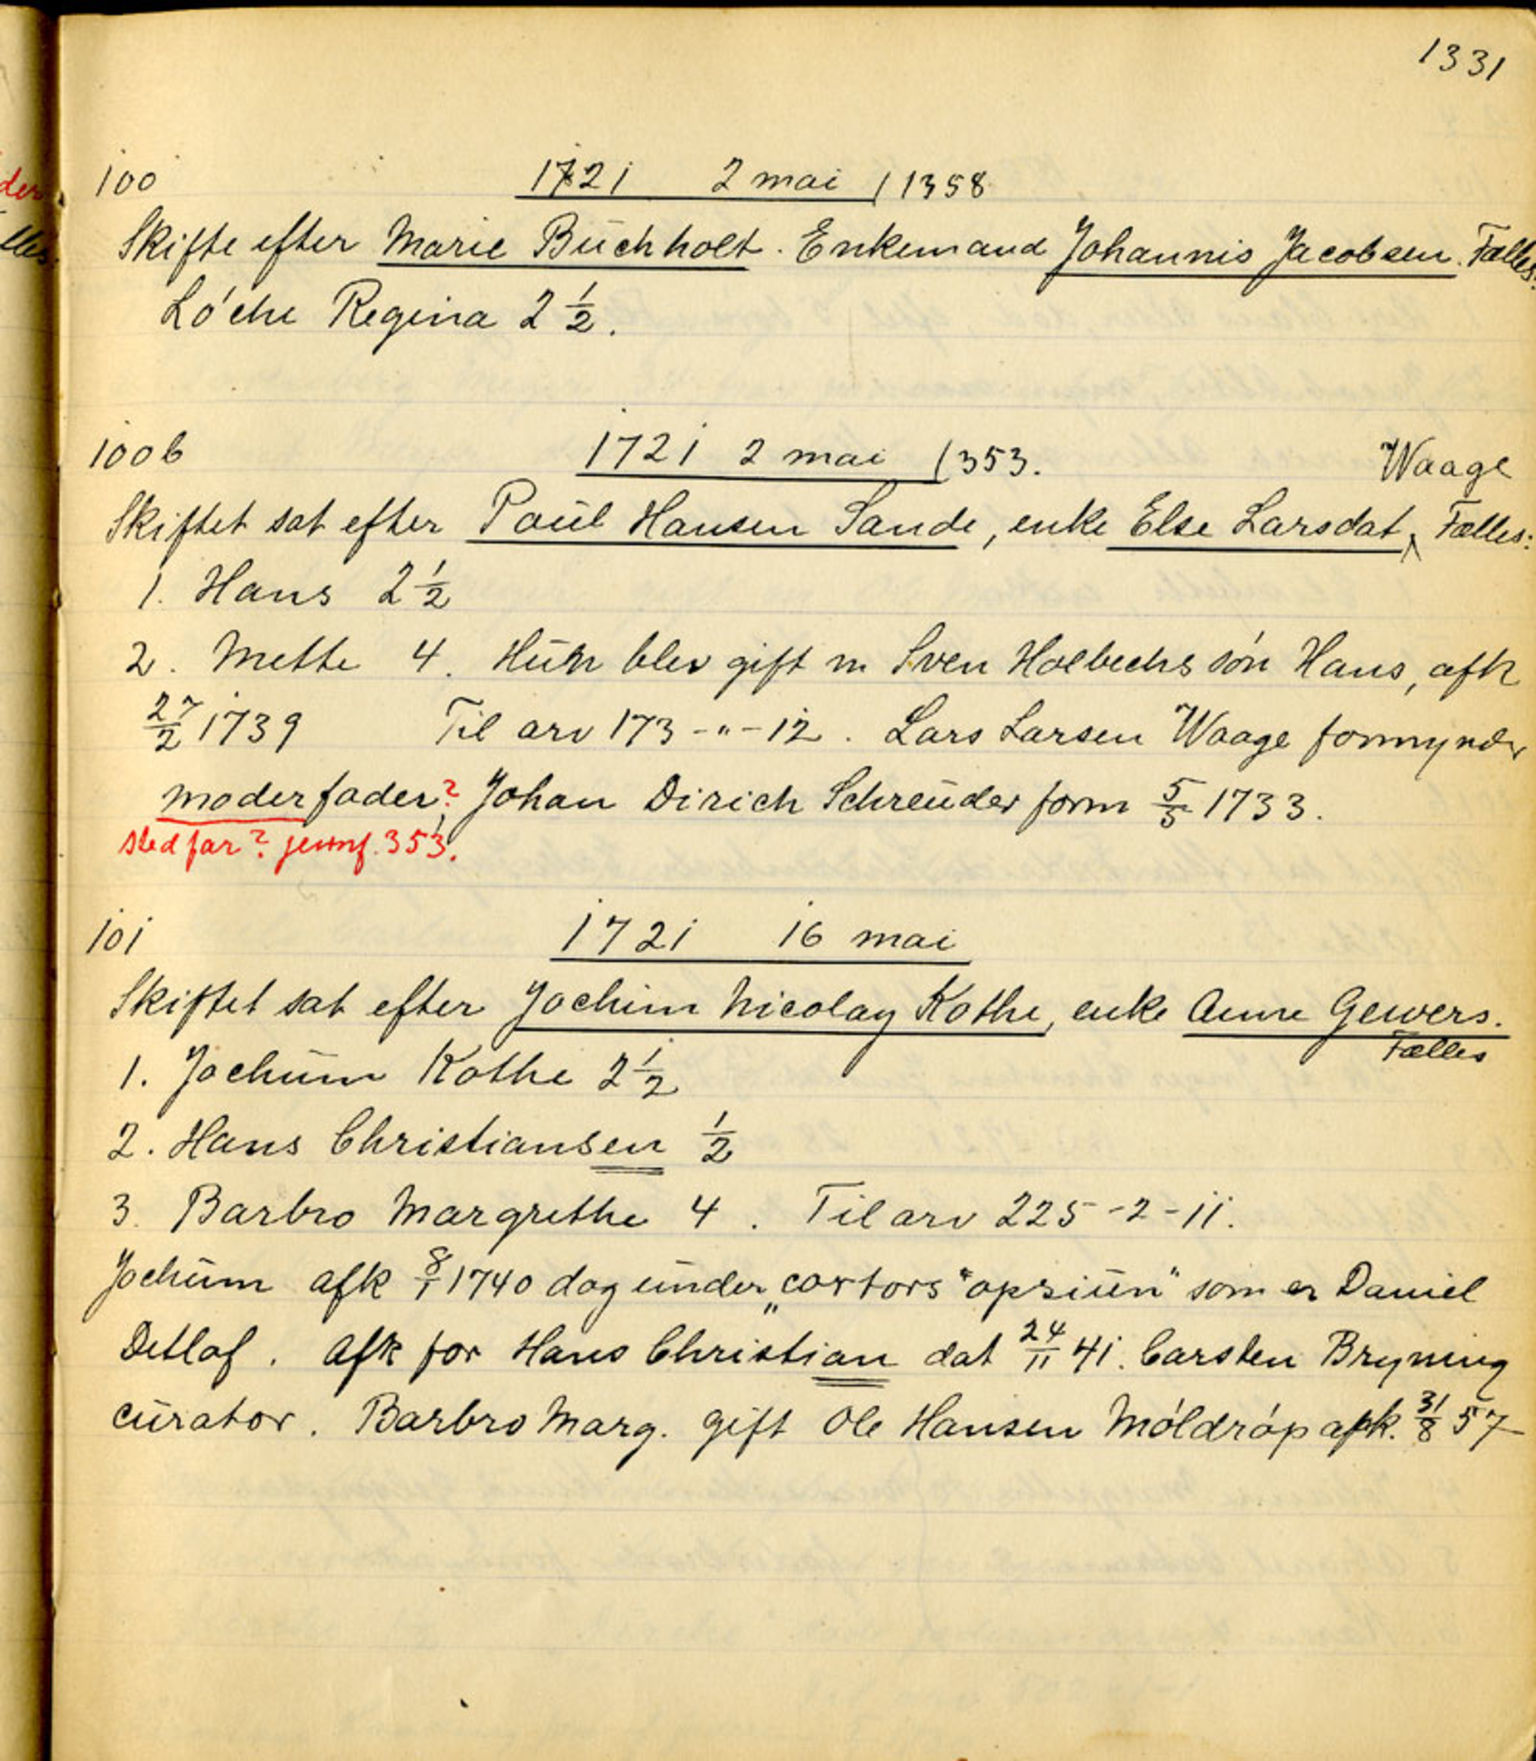 1331
100 1721 2 mai /1358
Skifte efter Marie Buchholt. Enkemand Johannis Jacobsen. Fælles:
Lóche Regina 2 1/2.
100b 1721 2 mai /353. Waage
Skiftet sat efter Paul Hansen Sande, enke Else Larsdat, Fælles:
1. Hans 2 1/2
2. Mette 4. Hun blev gift m Sven Holbechs són Hans, afk
27/2 1739 Til arv 173-"-12. Lars Larsen Waage formynder
moderfader? Johan Dirich Schreuder form 5/5 1733.
stedfar? jevnf. 353.
101 1721 16 mai
Skiftet sat efter Jochim Nicolay Kothe, enke Anne Gewers.
Fælles
1. Jochum Kothe 2 1/2
2. Hans Christiansen 1/2
3. Barbro Margrethe 4. Til arv 225-2-11.
Jochum afk 8/1 1740 dog under „cortors "opsiun" som er Daniel
Detlof. Afk for Hans Christian dat 24/11 41. Carsten Bryning
curator. Barbro Marg. gift Ole Hansen Móldróp afk. 31/8 57